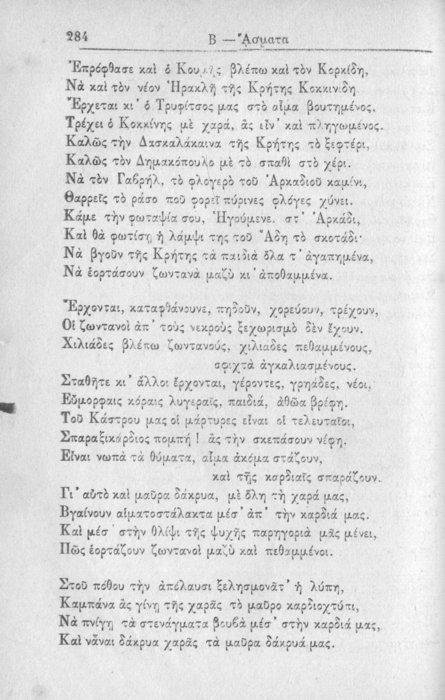 284
Β — Ἄσματα
Ἐπρόφθασε καὶ ὁ Κουμῆς βλέπω καὶ τὸν Κορκίδη,
Νὰ καὶ τὸν νέον Ἡρακλῆ τῆς Κρήτης Κοκκινίδη
Ἔρχεται κι' ὁ Τρυφίτσος μας στὸ αἷμα βουτημένος.
Τρέχει ὁ Κοκκίνης μὲ χαρά, ἂς εἶν' καὶ πληγωμένος.
Καλῶς τὴν Δασκαλάκαινα τῆς Κρήτης τὸ ξεφτέρι,
Καλῶς τὸν Δημακόπουλο μὲ τὸ σπαθὶ στὸ χέρι.
Νὰ τὸν Γαβρήλ, τὸ φλογερὸ τοῦ Ἀρκαδιοῦ καμίνι,
Θαρρεῖς τὸ ράσο ποῦ φορεῖ πύρινες φλόγες χύνει.
Κάμε τὴν φωταψία σου, Ἡγούμενε, στ' Ἀρκάδι,
Καὶ θὰ φωτίσῃ ἡ λάμψι της τοῦ Ἅδη τὸ σκοτάδι·
Νὰ βγοῦν τῆς Κρήτης τὰ παιδιὰ ὅλα τ' ἀγαπημένα,
Νὰ ἑορτάσουν ζωντανὰ μαζὺ κι' ἀποθαμμένα.
Ἔρχονται, καταφθάνουνε, πηδοῦν, χορεύουν, τρέχουν,
Οἱ ζωντανοὶ ἀπ' τοὺς νεκροὺς ξεχωρισμὸ δὲν ἔχουν.
Χιλιάδες βλέπω ζωντανούς, χιλιάδες πεθαμμένους,
σφιχτὰ ἀγκαλιασμένους.
Σταθῆτε κι' ἄλλοι ἔρχονται, γέροντες, γρηάδες, νέοι,
Εὐμορφαις κόραις λυγεραῖς, παιδιά, ἀθῶα βρέφη.
Τοῦ Κάστρου μας οἱ μάρτυρες εἶναι οἱ τελευταῖοι,
Σπαραξικάρδιος πομπή! ἂς τὴν σκεπάσουν νέφη.
Εἶναι νωπὰ τὰ θύματα, αἷμα ἀκόμα στάζουν,
καὶ τῆς καρδιαῖς σπαράζουν.
Γι' αὐτὸ καὶ μαῦρα δάκρυα, μὲ ὅλη τὴ χαρά μας,
Βγαίνουν αἱματοστάλακτα μέσ' ἀπ' τὴν καρδιά μας.
Καὶ μέσ' στὴν θλίψι τῆς ψυχῆς παρηγοριὰ μᾶς μένει,
Πῶς ἑορτάζουν ζωντανοὶ μαζὺ καὶ πεθαμμένοι.
Στοῦ πόθου τὴν ἀπέλαυσι ξελησμονᾶτ' ἡ λύπη,
Καμπάνα ἂς γίνῃ τῆς χαρᾶς τὸ μαῦρο καρδιοχτύπι,
Νὰ πνίγῃ τὰ στενάγματα βουβὰ μέσ' στὴν καρδιά μας,
Καὶ νἆναι δάκρυα χαρᾶς τὰ μαῦρα δάκρυά μας.